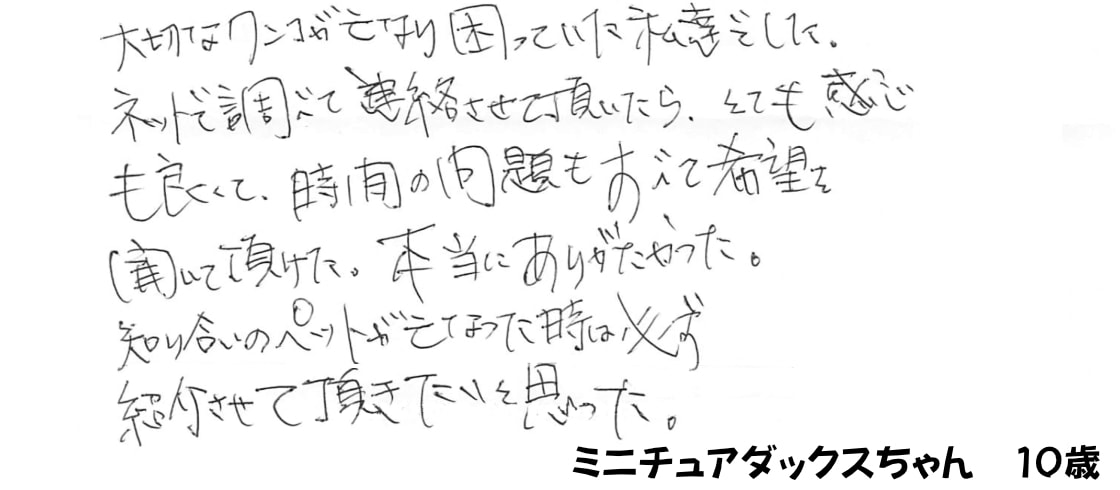 大切なワンコが亡なり困っていた私達でした。
ネットで調べて連絡させて頂いたら、とても感じ
も良くて、時間の問題もすべて希望を
聞いて頂けた。本当にありがたかった。
知り合いのペットが亡なった時は必ず
紹介させて頂きたいと思った。
ミニチュアダックスちゃん 10歳